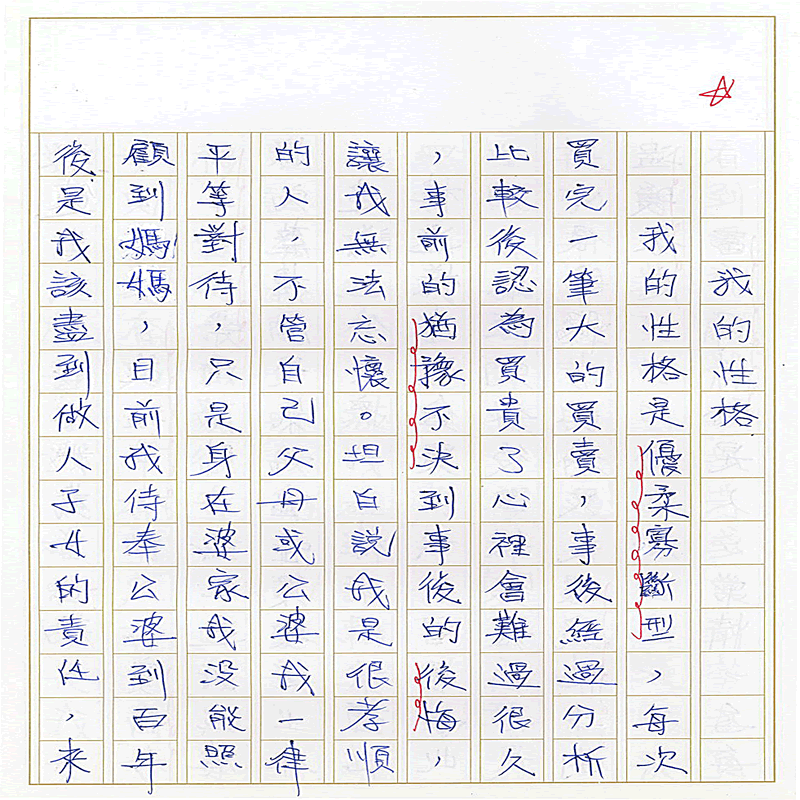 我的性格
我的性格是優柔寡斷型，每次
買完一筆大的買賣，事後經過分析
比較後認為買貴了心裡會難過很久
，事前的猶豫不決到事後的後悔，
讓我無法忘懷。坦白說我是很孝順
的人，不管自己父母或公婆我一律
平等對待，只是身在婆家我沒能照
顧到媽媽，目前我侍奉公婆到百年
後是我該盡到做人子女的責任，來